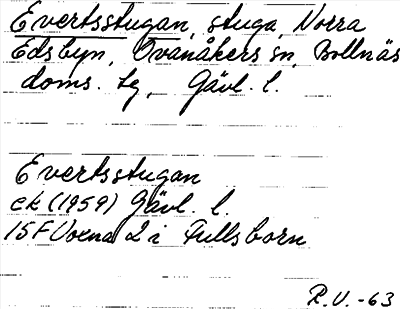 Evertsstugan, stuga, Norra
Edsbyn, Ovanåkers sn, Bollnäs
doms. lg, Gävl. l.
Evertsstugan
ek (1959) Gävl. l.
15F Voxna 2 i Fullsborn
R.V. -63